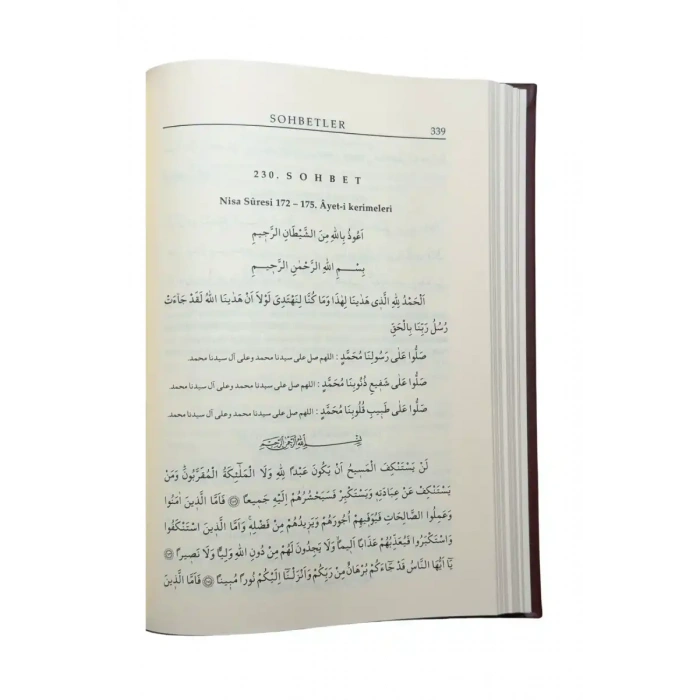 SOHBETLER
339
230. SOHBET
Nisa Sûresi 172 – 175. Âyet-i kerimeleri
اَعُوذُ بِاللهِ مِنَ الشَّيْطَانِ الرَّجِيمِ
بِسْمِ اللهِ الرَّحْمٰنِ الرَّحِيمِ
اَلْحَمْدُ لِلهِ الَّذِى هَدٰينَا لِهٰذَا وَمَا كُنَّا لِنَهْتَدِىَ لَوْلَا اَنْ هَدٰينَا اللهُ لَقَدْ جَاءَتْ
رُسُلُ رَبِّنَا بِالْحَقِّ
صَلُّوا عَلٰى رَسُولِنَا مُحَمَّدٍ : اللهم صل على سيدنا محمد وعلى آل سيدنا محمد.
صَلُّوا عَلٰى شَفِيعِ ذُنُوبِنَا مُحَمَّدٍ : اللهم صل على سيدنا محمد وعلى آل سيدنا محمد.
صَلُّوا عَلٰى طَبِيبِ قُلُوبِنَا مُحَمَّدٍ : اللهم صل على سيدنا محمد وعلى آل سيدنا محمد.
بِسْمِ اللهِ الرَّحْمٰنِ الرَّحِيمِ
لَنْ يَسْتَنْكِفَ الْمَسِيحُ اَنْ يَكُونَ عَبْدًا لِلهِ وَلَا الْمَلٰئِكَةُ الْمُقَرَّبُونَ وَمَنْ
يَسْتَنْكِفْ عَنْ عِبَادَتِهِ وَيَسْتَكْبِرْ فَسَيَحْشُرُهُمْ اِلَيْهِ جَمِيعًا فَاَمَّا الَّذِينَ اٰمَنُوا
وَعَمِلُوا الصَّالِحَاتِ فَيُوَفِّيهِمْ اُجُورَهُمْ وَيَزِيدُهُمْ مِنْ فَضْلِهِ وَاَمَّا الَّذِينَ اسْتَنْكَفُوا
وَاسْتَكْبَرُوا فَيُعَذِّبُهُمْ عَذَابًا اَلِيمًا وَلَا يَجِدُونَ لَهُمْ مِنْ دُونِ اللهِ وَلِيًّا وَلَا نَصِيرًا
يَا اَيُّهَا النَّاسُ قَدْ جَاءَكُمْ بُرْهَانٌ مِنْ رَبِّكُمْ وَاَنْزَلْنَا اِلَيْكُمْ نُورًا مُبِينًا فَاَمَّا الَّذِينَ